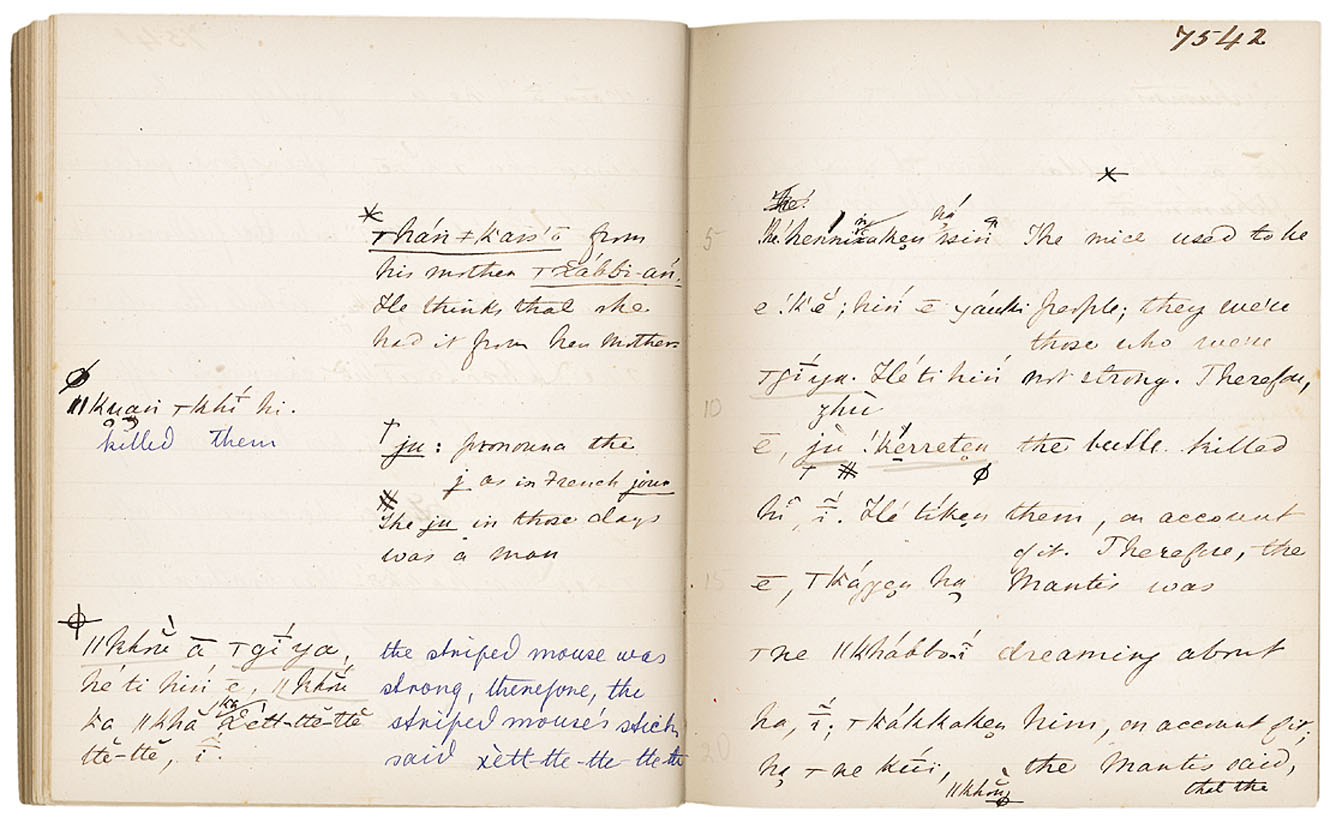 *
⊤hán≠kass'ō from
his mother ⊤xábbi-an̄.
He thinks that she
had it from her mother.
ø
ǁkuan ⊤khī hi.
killed them
† ju: pronounce the
j as in French jour
The ju in those days
was a man
ǁkhŏù ā ⊤gī́ya,
hé ti hiń ē, ǁkhŏù
ka ǁkhā ka xètt-ttĕ-ttĕ
ttĕ-ttĕ, ī.
the striped mouse was
strong, therefore, the
striped mouse's stick
said xètt-tte-tte-tte-tte
7542
*
5 The mice used to be
e !k'ĕ; hiń ē yáuki people; they were
those who were
⊤gī́ya. Hé ti hiń not strong. Therefore,
10 zhù
ē, jù !kérreten the beetle killed
† ø
hĭ, ī. Hé tíken them, on account
of it. Therefore, the
15 ē, ⊤kággen ha Mantis was
⊤ne ǁkhábbo-ī dreaming about
ha, ī; ⊤kákkaken him, on account of it;
20 ha ⊤ne kúï, the Mantis said,
ǁkhŏù that the
ø